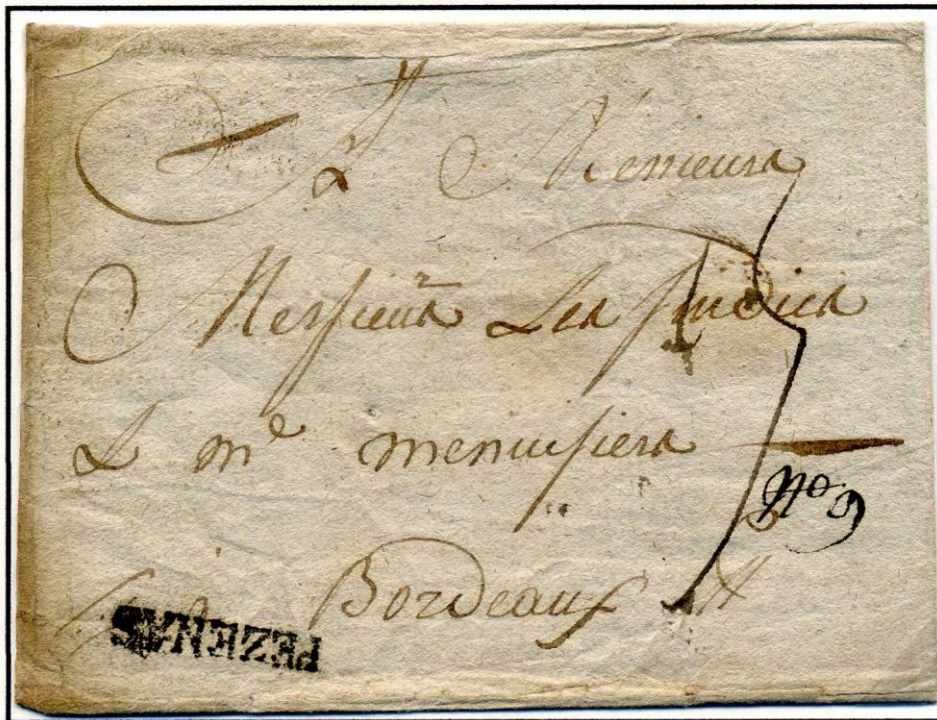 A Messieurs
Messieurs Les sindics
& me menuisiers
No 9
a Bordeaux
PEZENAS